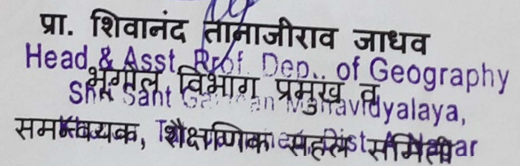 प्रा. शिवानंद तानाजीराव जाधव
Head & Asst. Prof. Dep.. of Geography
भूगोल विभाग प्रमुख व
Shri Sant Mahavidyalaya,
समन्वयक, शैक्षणिक सहल समिती
Dist.